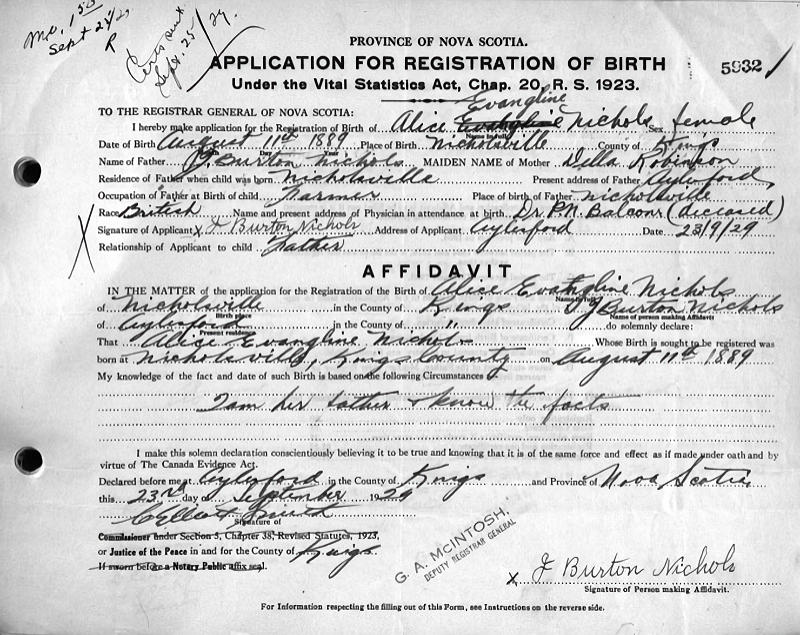 Mc. 1 50
Sept 25/29
R
Certs sent
Sept. 25/29
PROVINCE OF NOVA SCOTIA.
APPLICATION FOR REGISTRATION OF BIRTH
5932
Under the Vital Statistics Act, Chap. 20, R. S. 1923.
TO THE REGISTRAR GENERAL OF NOVA SCOTIA:
Evangline
I hereby make application for the Registration of Birth of Alice Nichols Sex female
Name in full
Date of Birth August 11th 1889 Place of Birth Nicholsville County of Kings
Month Day Year
Name of Father J. Burton Nichols MAIDEN NAME of Mother Della Robinson
Residence of Father when child was born Nicholsville Present address of Father Aylesford
Occupation of Father at Birth of child Farmer Place of birth of Father Nicholsville
Race British Name and present address of Physician in attendance at birth Dr. P.N. Balcom (deceased)
Signature of Applicant x J Burton Nichols Address of Applicant Aylesford Date 23/9/29
Relationship of Applicant to child Father
AFFIDAVIT
IN THE MATTER of the application for the Registration of the Birth of Alice Evangline Nichols
Name in full
of Nicholsville in the County of Kings I J Burton Nichols
Birth place Name of person making Affidavit
of Aylesford in the County of " do solemnly declare:
Present residence
That Alice Evangline Nichols Whose Birth is sought to be registered was
born at Nicholsville, Kings County on August 11th 1889
My knowledge of the fact and date of such Birth is based on the following Circumstances
I am her father & know the facts
I make this solemn declaration conscientiously believing it to be true and knowing that it is of the same force and effect as if made under oath and by
virtue of The Canada Evidence Act.
Declared before me at Aylesford in the County of Kings and Province of Nova Scotia
this 23rd day of September 1929
Signature of
Commissioner under Section 5, Chapter 38, Revised Statutes, 1923,
or Justice of the Peace in and for the County of Kings
If sworn before a Notary Public affix seal.
G. A. MCINTOSH,
DEPUTY REGISTRAR GENERAL
x J Burton Nichols
Signature of Person making Affidavit.
For Information respecting the filling out of this Form, see Instructions on the reverse side.